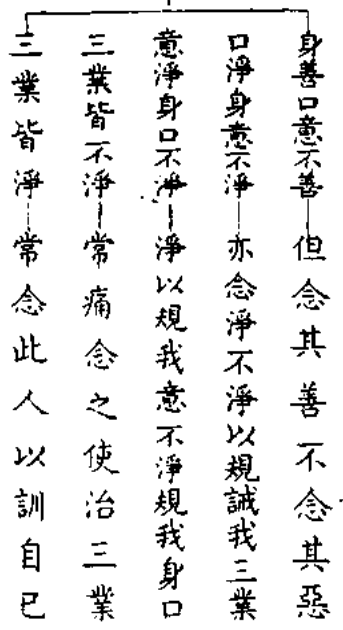 身善口意不善——但念其善不念其惡
口淨身意不淨——亦念淨不淨以規誠我三業
意淨身口不淨——淨以規我意不淨規我身口
三業皆不淨——常痛念之使治三業
三業皆淨——常念此人以訓自己